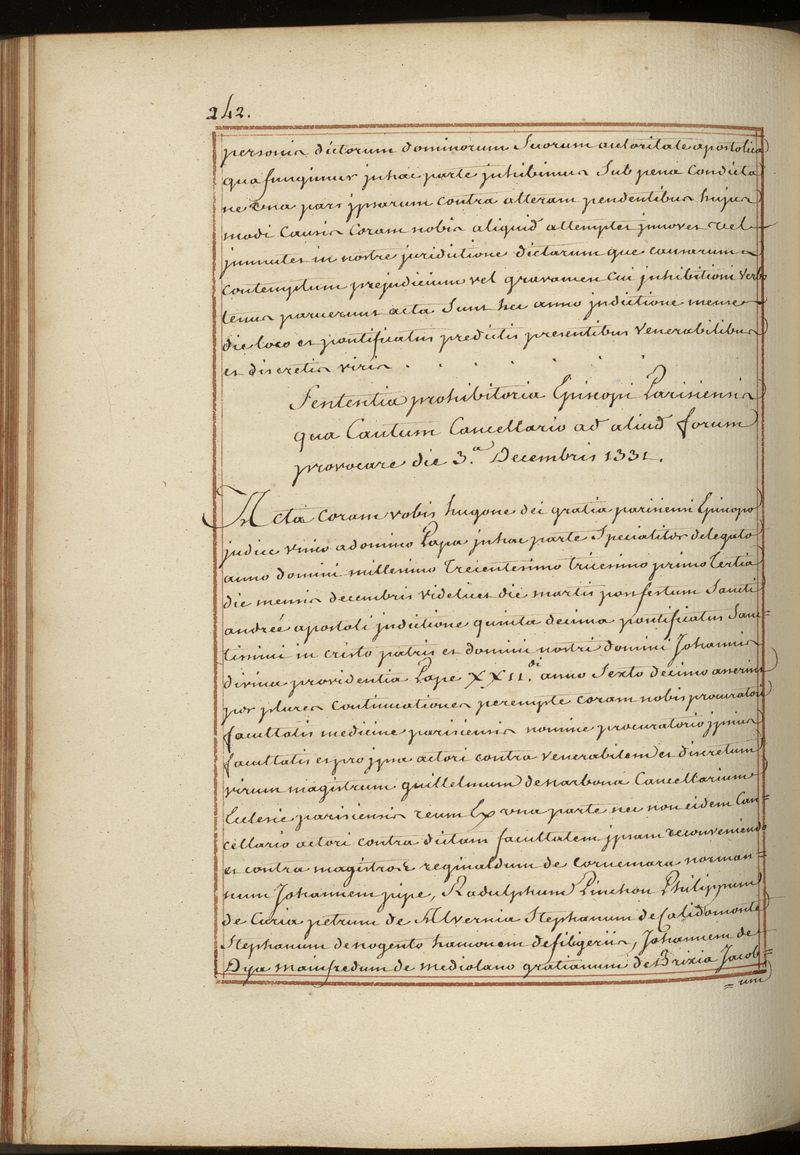 242.
personis dictorum dominorum Suorum autoritate apostolica
qua fungimur jnhac parte jnhibimus Sub pena Condicta
ne vna pars jpsarum contra alteram pendentibus hujus
modi Causis Coram nobis aliquid attemptet jnnovet vel
jmmutet in nostre juridictione dictarum que causarum
Contemptum prejudicium vel gravamen Cui jnhibitioni Verbo
tenus paruerunt acta Sunt hec anno jndictione mense
die loco et pontificatus predictis presentibus Venerabilibus
et discretis viris . . . . . .
Sententia prohibitoria Episcopi Parisiensis
qua Cautum Cancellario ad aliud forum
provocare die 3.a Decembris 1331.
Acta Coram vobis hugone dei gratia parisiensi Episcopo
judice vnico a domino Papa jnhac parte Specialiter delegato
anno domini millesimo Trecentesimo tricesimo primo Tertia
die mensis decembris Videlicet die martis post festum Sancti
andreé apostoli jndictione quinta decima pontificatus Sanc=
tissimi in cristo patris et domini nostri domini Johannis
divina providentia Pape XXII.di anno Sexto decimo
per plures Continuationes perempte coram nobis procuratori
facultatis medicine parisiensis nomine procuratorio jpsius
facultatis et pro jpsa actori contra Venerabilem et discretum
virum magistrum guillelmum de narbona Cancellarium
Eclesie parisiensis reum Ex vna parte nec non eidem Can=
cellario actori contra dictam facultatem jpsam reconveniendo
et contra magistros reginaldum de cornemara norman=
num Johannem pipe, Radulphum Pinchon Philippum
de Curia petrum de Alvernia Stephanum de Calidomonte
Stephanum denogento hamonem defiligeriis, Johannem de
Dya mainfredum de mediolano gratianum de Brixia Jacob=
=um